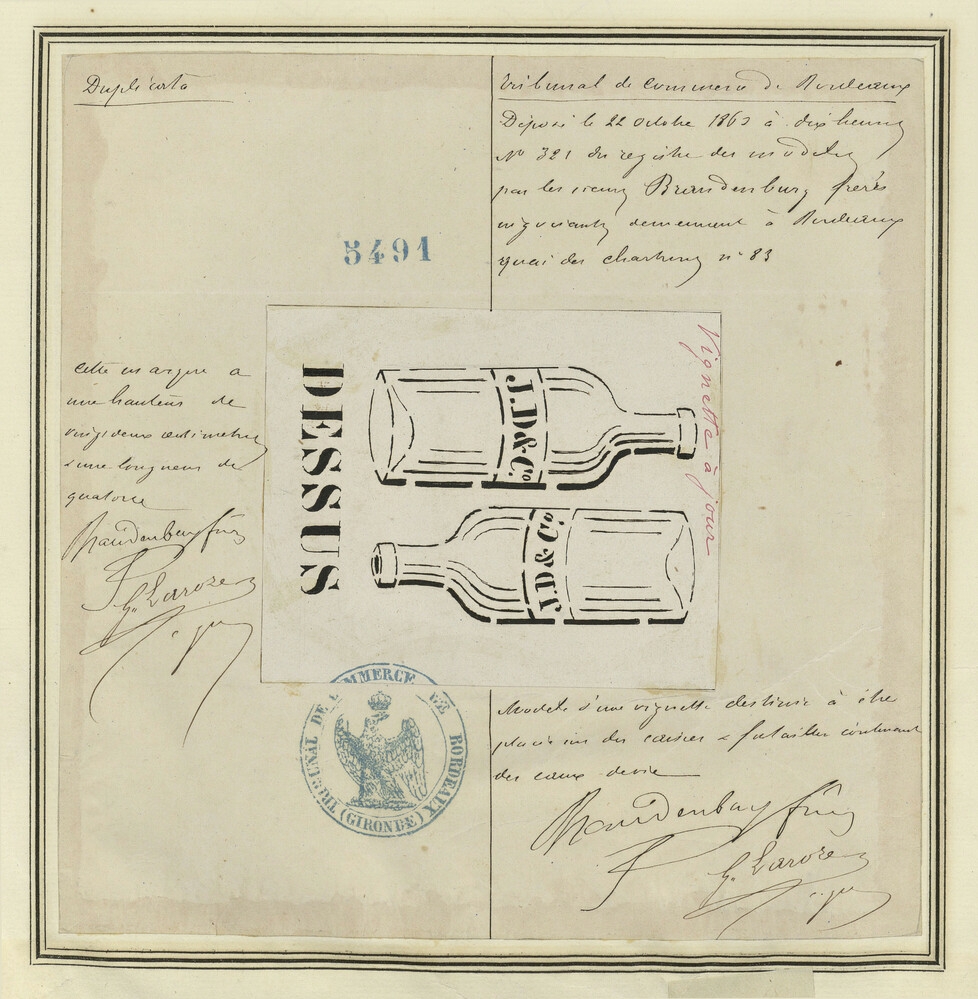 Duplicata
Tribunal de commerce de Bordeaux
Déposé le 22 octobre 1863 à dix heures
N° 321 du registre des modèles
par les sieurs Brandenburg frères
négociants demeurant à Bordeaux
quai des chartrons n° 83
5491
cette marque a
une hauteur de
vingt deux centimetres
& une longueur de
quatorze
Brandenburg frères
G. Laroze
DESSUS
J.D & Co.
J.D & Co.
Vignette à jour
TRIBUNAL DE COMMERCE DE BORDEAUX
(GIRONDE)
Modèle d'une vignette destinée à être
placée sur des caisses & futailles contenant
des eaux de vie
Brandenburg frères
G. Laroze